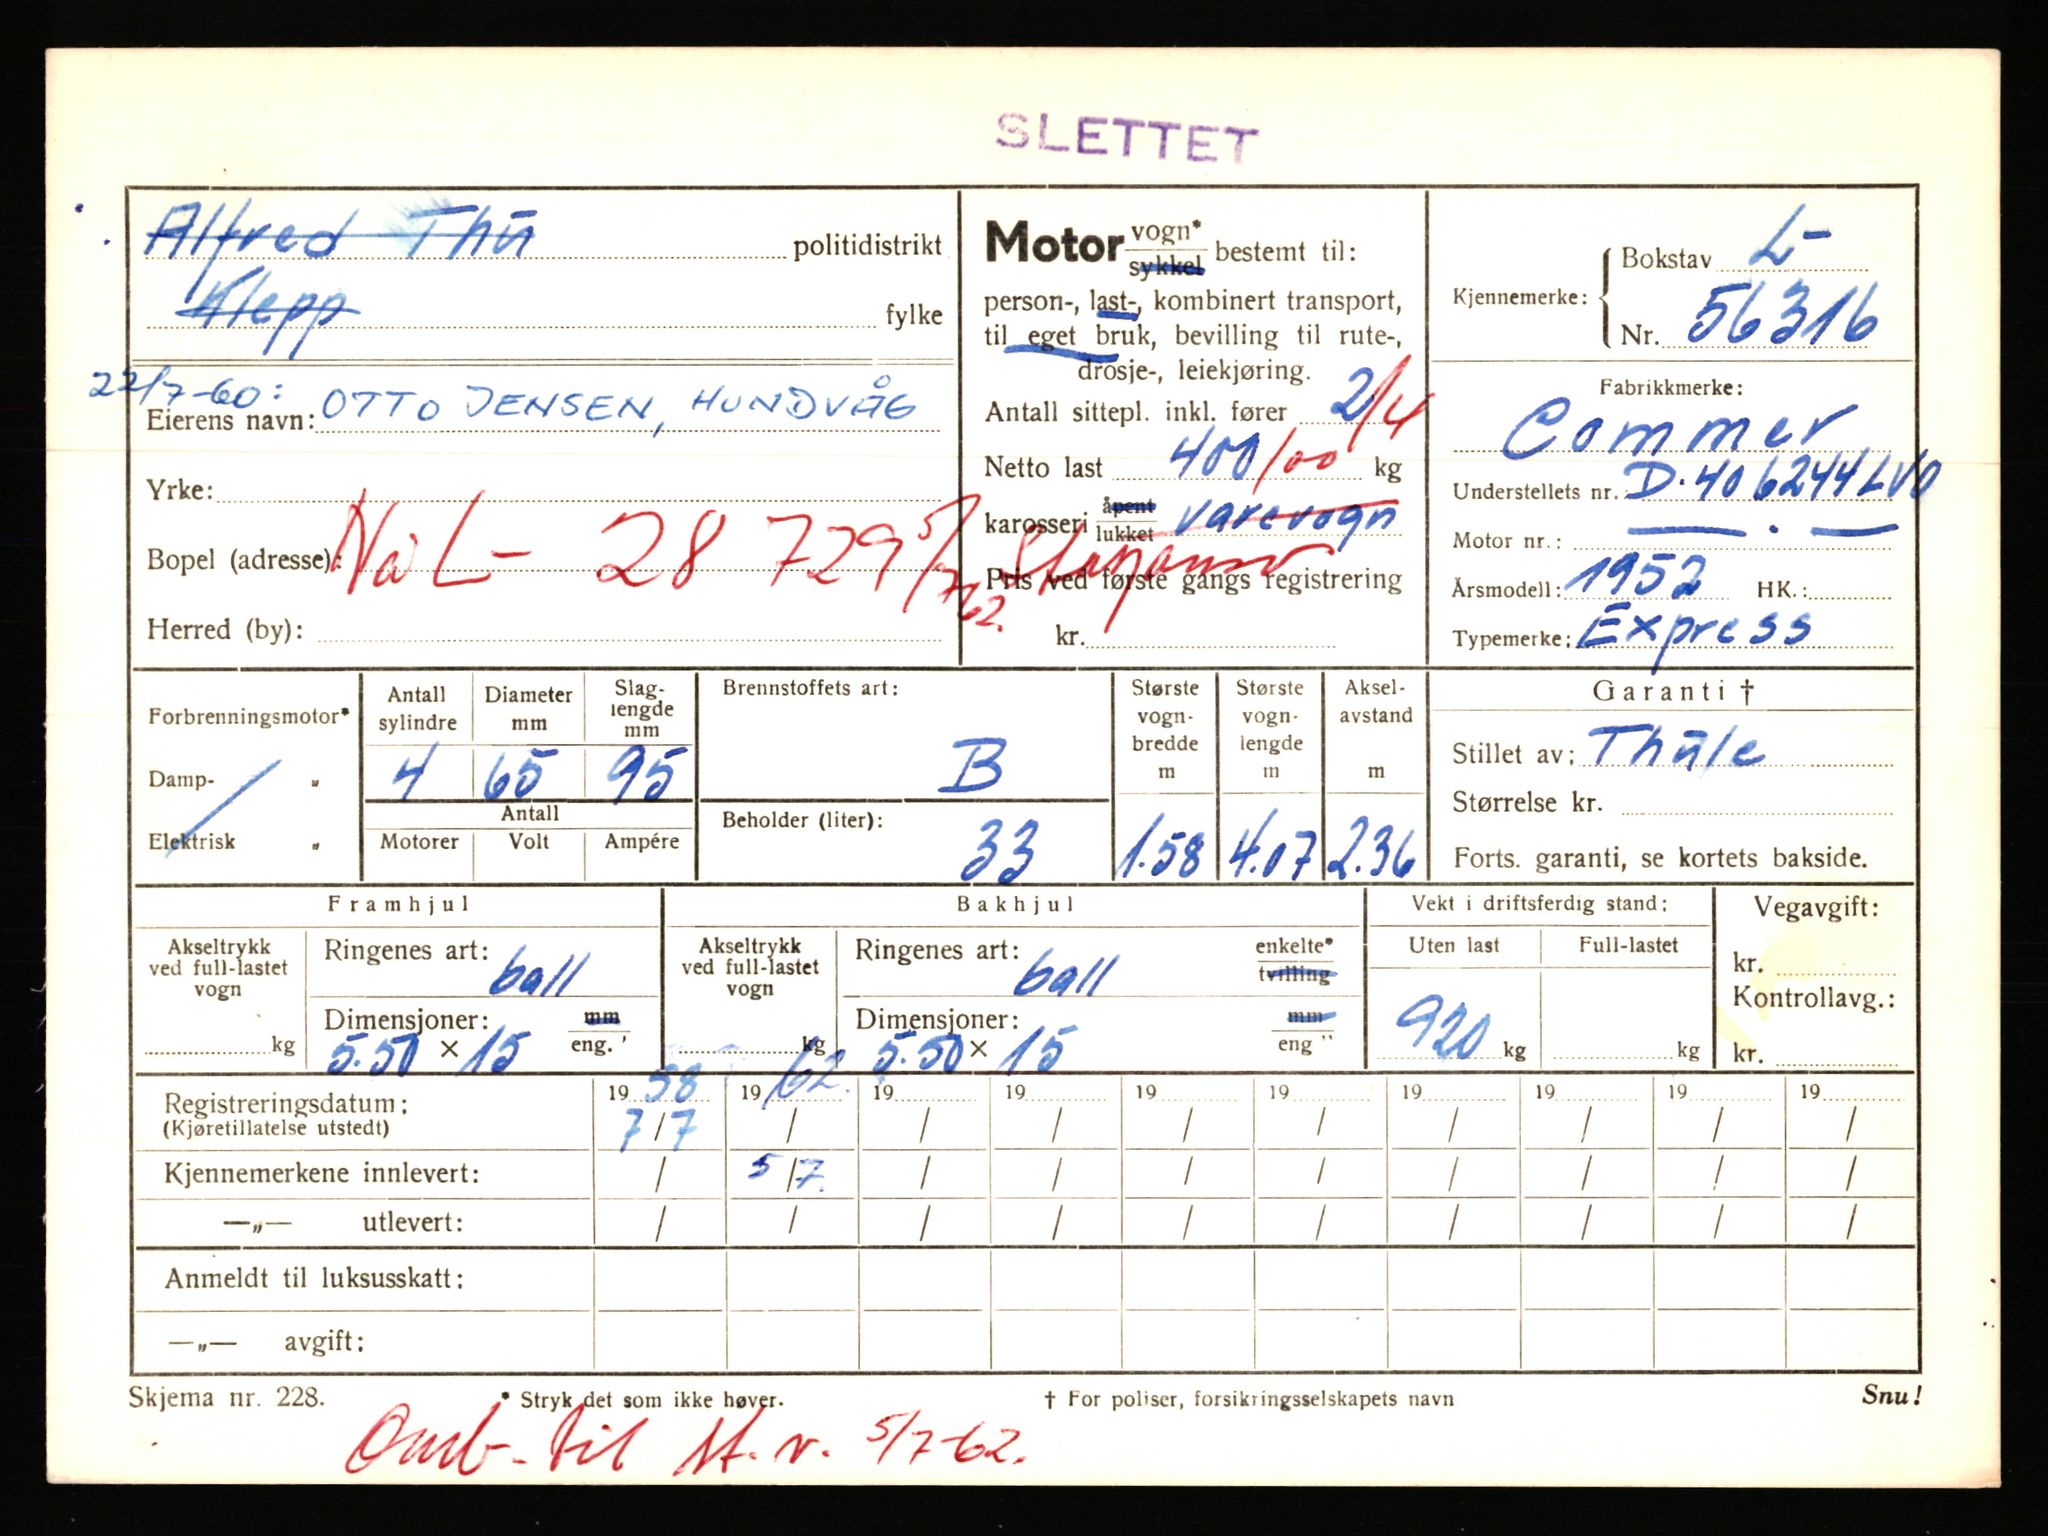 SLETTET
Alfred Thu politidistrikt
Klepp fylke
22/7-60:
Eierens navn: OTTO JENSEN, HUNDVÅG
Yrke:
Bopel (adresse): Nå L- 28 729 5/7-62.
Herred (by):
Motor vogn* sykkel bestemt til:
person-, last-, kombinert transport,
til eget bruk, bevilling til rute-,
drosje-, leiekjøring.
Antall sittepl. inkl. fører 2/4
Netto last 400/00 kg
karosseri åpent lukket varevogn
Stasjonsv
Pris ved første gangs registrering
kr.
Kjennemerke: Bokstav L-
Nr. 56316
Fabrikkmerke:
Commer
Understellets nr. D.406244LVO
Motor nr.: — . —
Årsmodell: 1952 HK.:
Typemerke: Express
Forbrenningsmotor*
Damp- „
Elektrisk „
Antall sylindre Diameter mm Slag-lengde mm
4 65 95
Antall
Motorer Volt Ampére
Brennstoffets art:
B
Beholder (liter):
33
Største vogn-bredde m
1.58
Største vogn-lengde m
4.07
Aksel-avstand m
2.36
Garanti †
Stillet av: Thule
Størrelse kr.
Forts. garanti, se kortets bakside.
Framhjul
Akseltrykk ved full-lastet vogn
kg
Ringenes art: ball
Dimensjoner: mm eng. '
5.50 × 15
Bakhjul
Akseltrykk ved full-lastet vogn
kg
Ringenes art: ball enkelte* tvilling
Dimensjoner: mm eng "
5.50 × 15
Vekt i driftsferdig stand:
Uten last Full-lastet
920 kg kg
Vegavgift:
kr.
Kontrollavg.:
kr.
19 58 19 62. 19 19 19 19 19 19 19 19
Registreringsdatum: 7/7 / / / / / / / / /
(Kjøretillatelse utstedt)
Kjennemerkene innlevert: / 5/7. / / / / / / / /
—„— utlevert: / / / / / / / / / /
Anmeldt til luksusskatt:
—„— avgift:
Skjema nr. 228. * Stryk det som ikke høver. † For poliser, forsikringsselskapets navn Snu!
Omb. til st. v. 5/7-62.